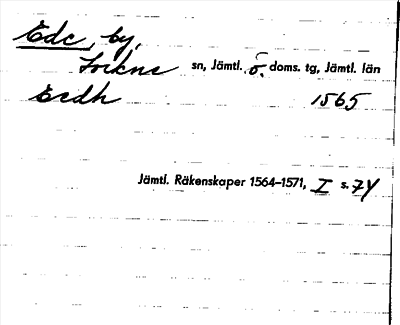 Ede, by,
Lockne sn, Jämtl. ö. doms. tg, Jämtl. län
Eedh 1565
Jämtl. Räkenskaper 1564–1571, I s. 74